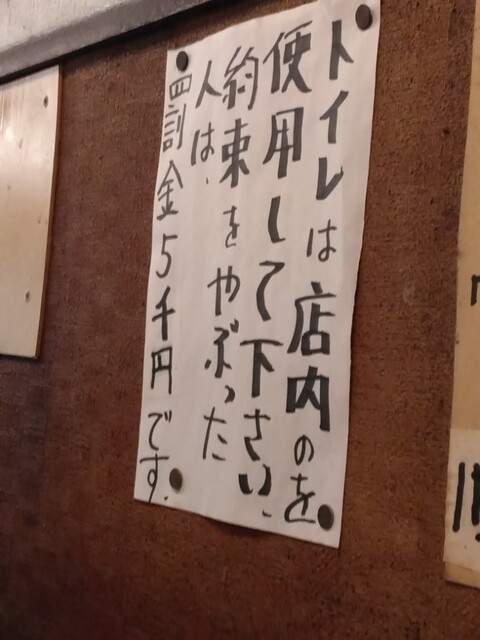 トイレは店内のを
使用して下さい、
約束をやぶった
人は、
罰金5千円です.